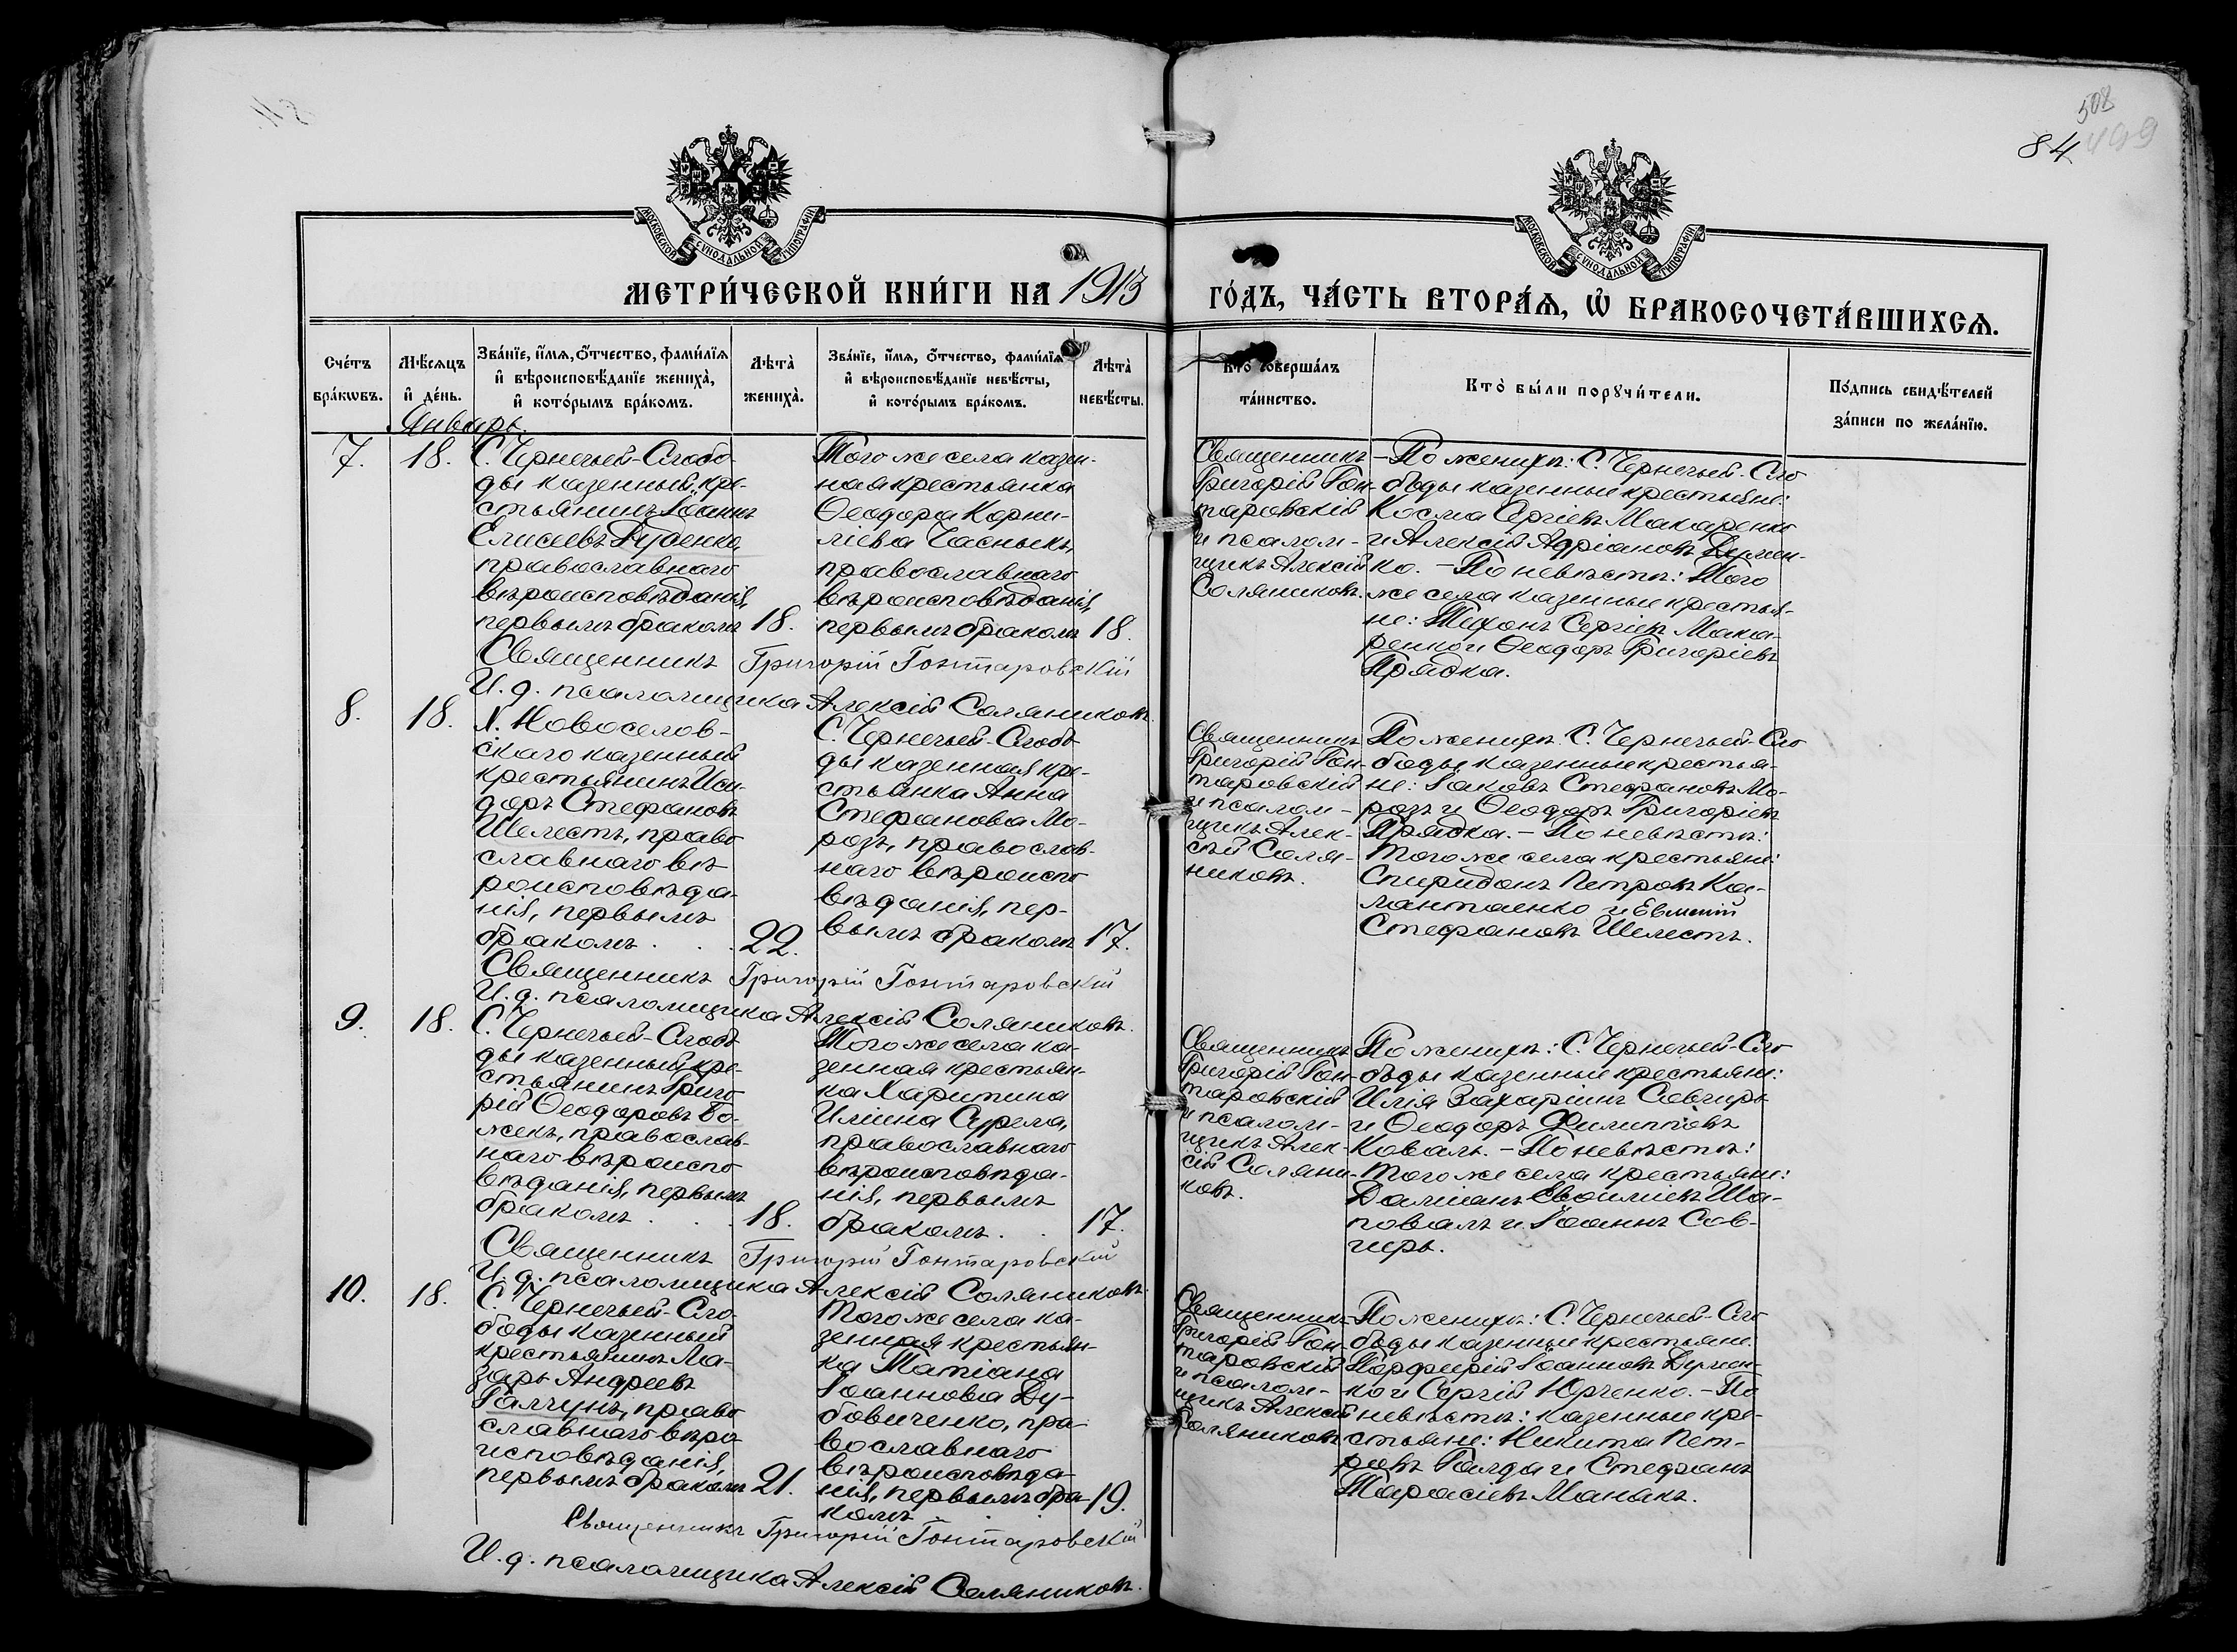 508
84 499
МОСКОВСКОЙ СѴНОДАЛЬНОЙ ТИПОГРАФІИ
МОСКОВСКОЙ СѴНОДАЛЬНОЙ ТИПОГРАФІИ
МЕТРИ́ЧЕСКОЙ КНИ́ГИ НА 1913 ГО́ДЪ, ЧА́СТЬ ВТОРА́Ѧ, Ѽ БРАКОСОЧЕТА́ВШИХСѦ.
Сче́тъ
бра́кѡвъ.
Мѣ́сѧцъ
и҆ де́нь.
Зва́нїе, и҆́мѧ, ѻ҆́тчество, фами́лїѧ
и҆ вѣроисповѣ́данїе жениха̀,
и҆ кото́рымъ бра́комъ.
Лѣта̀
жениха̀.
Зва́нїе, и҆́мѧ, ѻ҆́тчество, фами́лїѧ
и҆ вѣроисповѣ́данїе невѣ́сты,
и҆ кото́рымъ бра́комъ.
Лѣта̀
невѣ́сты.
Кто̀ соверша́лъ
та́инство.
Кто̀ бы́ли порꙋчи́тели.
По́дпись свидѣ́телей
за́писи по жела́нїю.
Январь.
7.
18.
С. Чернечьей-Слобо-
ды казенный кре-
стьянинъ Іоаннъ
Елисеевъ Руденко,
православнаго
вѣроисповѣданія,
первымъ бракомъ
18.
Того же села казен-
ная крестьянка
Ѳеодора Корни-
ліева Часныкъ,
православнаго
вѣроисповѣданія,
первымъ бракомъ
18.
Священникъ
Григорій Гон-
таровскій
и псалом-
щикъ Алексій
Соляниковъ.
По женихѣ: С. Чернечьей-Сло-
боды казенные крестьяне:
Косма Сергіевъ Макаренко
и Алексій Адріановъ Думен-
ко. – По невѣстѣ: Того
же села казенные крестья-
не: Тихонъ Сергіевъ Мака-
ренко и Ѳеодоръ Григоріевъ
Прядка.
Священникъ Григорій Гонтаровскій
И. д. псаломщика Алексій Соляниковъ.
8.
18.
Х. Новоселов-
скаго казенный
крестьянинъ Иси-
доръ Стефановъ
Шелестъ, право-
славнаго вѣ-
роисповѣда-
нія, первымъ
бракомъ . . .
22.
С. Чернечьей-Слобо-
ды казенная кре-
стьянка Анна
Стефанова Мо-
розъ, православ-
наго вѣроиспо-
вѣданія, пер-
вымъ бракомъ
17.
Священникъ
Григорій Гон-
таровскій
и псалом-
щикъ Алек-
сѣй Соля-
никовъ.
По женихѣ: С. Чернечьей-Сло-
боды казенные крестья-
не: Іаковъ Стефановъ Мо-
розъ и Ѳеодоръ Григоріевъ
Прядка. – По невѣстѣ:
Того же села крестьяне:
Спиридонъ Петровъ Ка-
лантаенко и Евѳимій
Стефановъ Шелестъ.
Священникъ Григорій Гонтаровскій
И. д. псаломщика Алексій Соляниковъ.
9.
18.
С. Чернечьей-Слобо-
ды казенный кре-
стьянинъ Григо-
рій Ѳеодоровъ Бо-
жекъ, православ-
наго вѣроиспо-
вѣданія, первымъ
бракомъ . . .
18.
Того же села ка-
зенная крестьян-
ка Харитина
Иліина Сурела,
православнаго
вѣроисповѣда-
нія, первымъ
бракомъ . .
17.
Священникъ
Григорій Гон-
таровскій
и псалом-
щикъ Алек-
сій Соляни-
ковъ.
По женихѣ: С. Чернечьей-Сло-
боды казенные крестьяне:
Илія Захаріинъ Савчирь
и Ѳеодоръ Филипповъ
Коваль. – По невѣстѣ:
Того же села крестьяне:
Даміанъ Евѳиміевъ Ша-
повалъ и Іоаннъ Сав-
чирь.
Священникъ Григорій Гонтаровскій
И. д. псаломщика Алексій Соляниковъ.
10.
18.
С. Чернечьей-Сло-
боды казенный
крестьянинъ Ла-
зарь Андреевъ
Галчунъ, право-
славнаго вѣро-
исповѣданія,
первымъ бракомъ
21.
Того же села ка-
зенная крестьян-
ка Татіана
Іоаннова Ду-
бовиченко, пра-
вославнаго
вѣроисповѣда-
нія, первымъ бра-
комъ . .
19.
Священникъ
Григорій Гон-
таровскій
и псалом-
щикъ Алексій
Соляниковъ
По женихѣ: С. Чернечьей-Сло-
боды казенные крестьяне:
Порфирій Іоанновъ Думен-
ко и Сергій Юрченко. – По
невѣстѣ: казенные кре-
стьяне: Никита Пет-
ровъ Галда и Стефанъ
Тарасіевъ Манакъ.
Священникъ Григорій Гонтаровскій
И. д. псаломщика Алексій Соляниковъ.